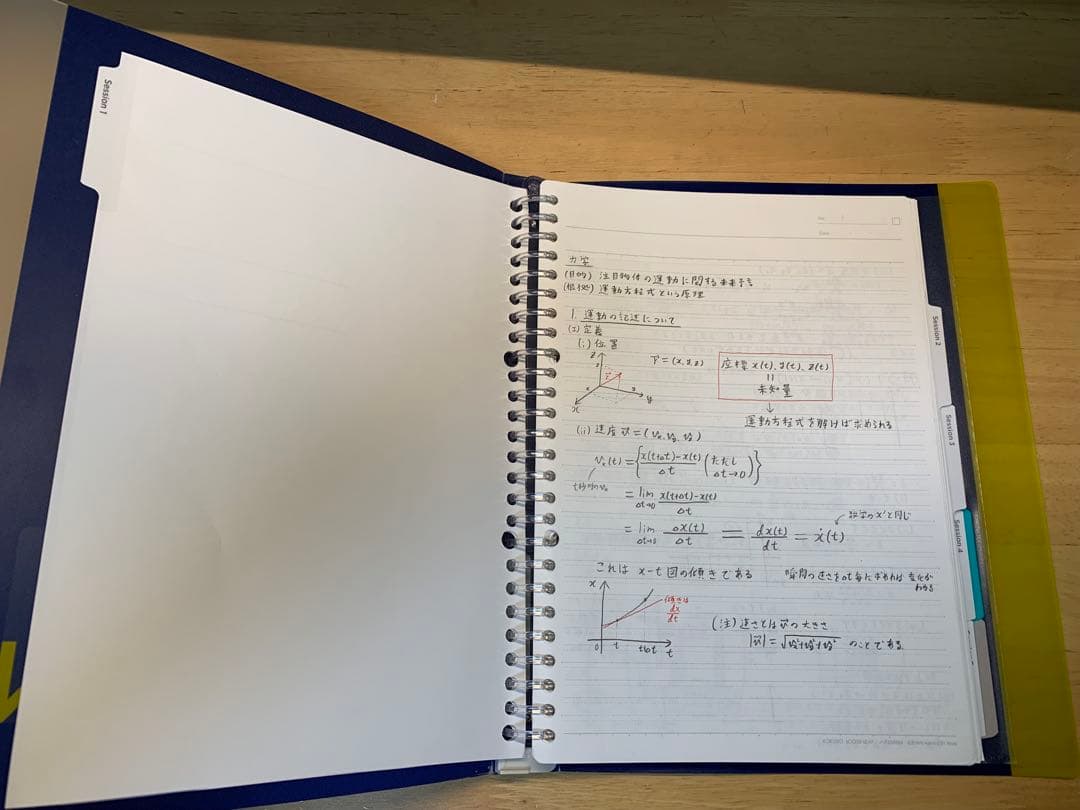 Session 1
No.
Date
力学
(目的) 注目物体の運動に関する未来予言
(根拠) 運動方程式という原理
1. 運動の記述について
(1) 定義
(i) 位置
z
x
y
r
r = (x, y, z)
座標 x(t), y(t), z(t)
||
未知量
↓
運動方程式を解けば求められる
(ii) 速度 v = (vx, vy, vz)
vx(t) = { (x(t+Δt)-x(t))/Δt (ただし Δt→0) }
t秒時のvx
= lim Δt→0 (x(t+Δt)-x(t))/Δt
= lim Δt→0 Δx(t)/Δt = dx(t)/dt = ẋ(t)
数学のx'と同じ
これは x-t 図の傾きである
瞬間の速さをΔt毎に求めれば 変化がわかる
x
傾きは dx/dt
0 t t+Δt t
(注) 速さとは v の大きさ
|v| = √(vx²+vy²+vz²) のことである
Session 2
Session 3
Session 4